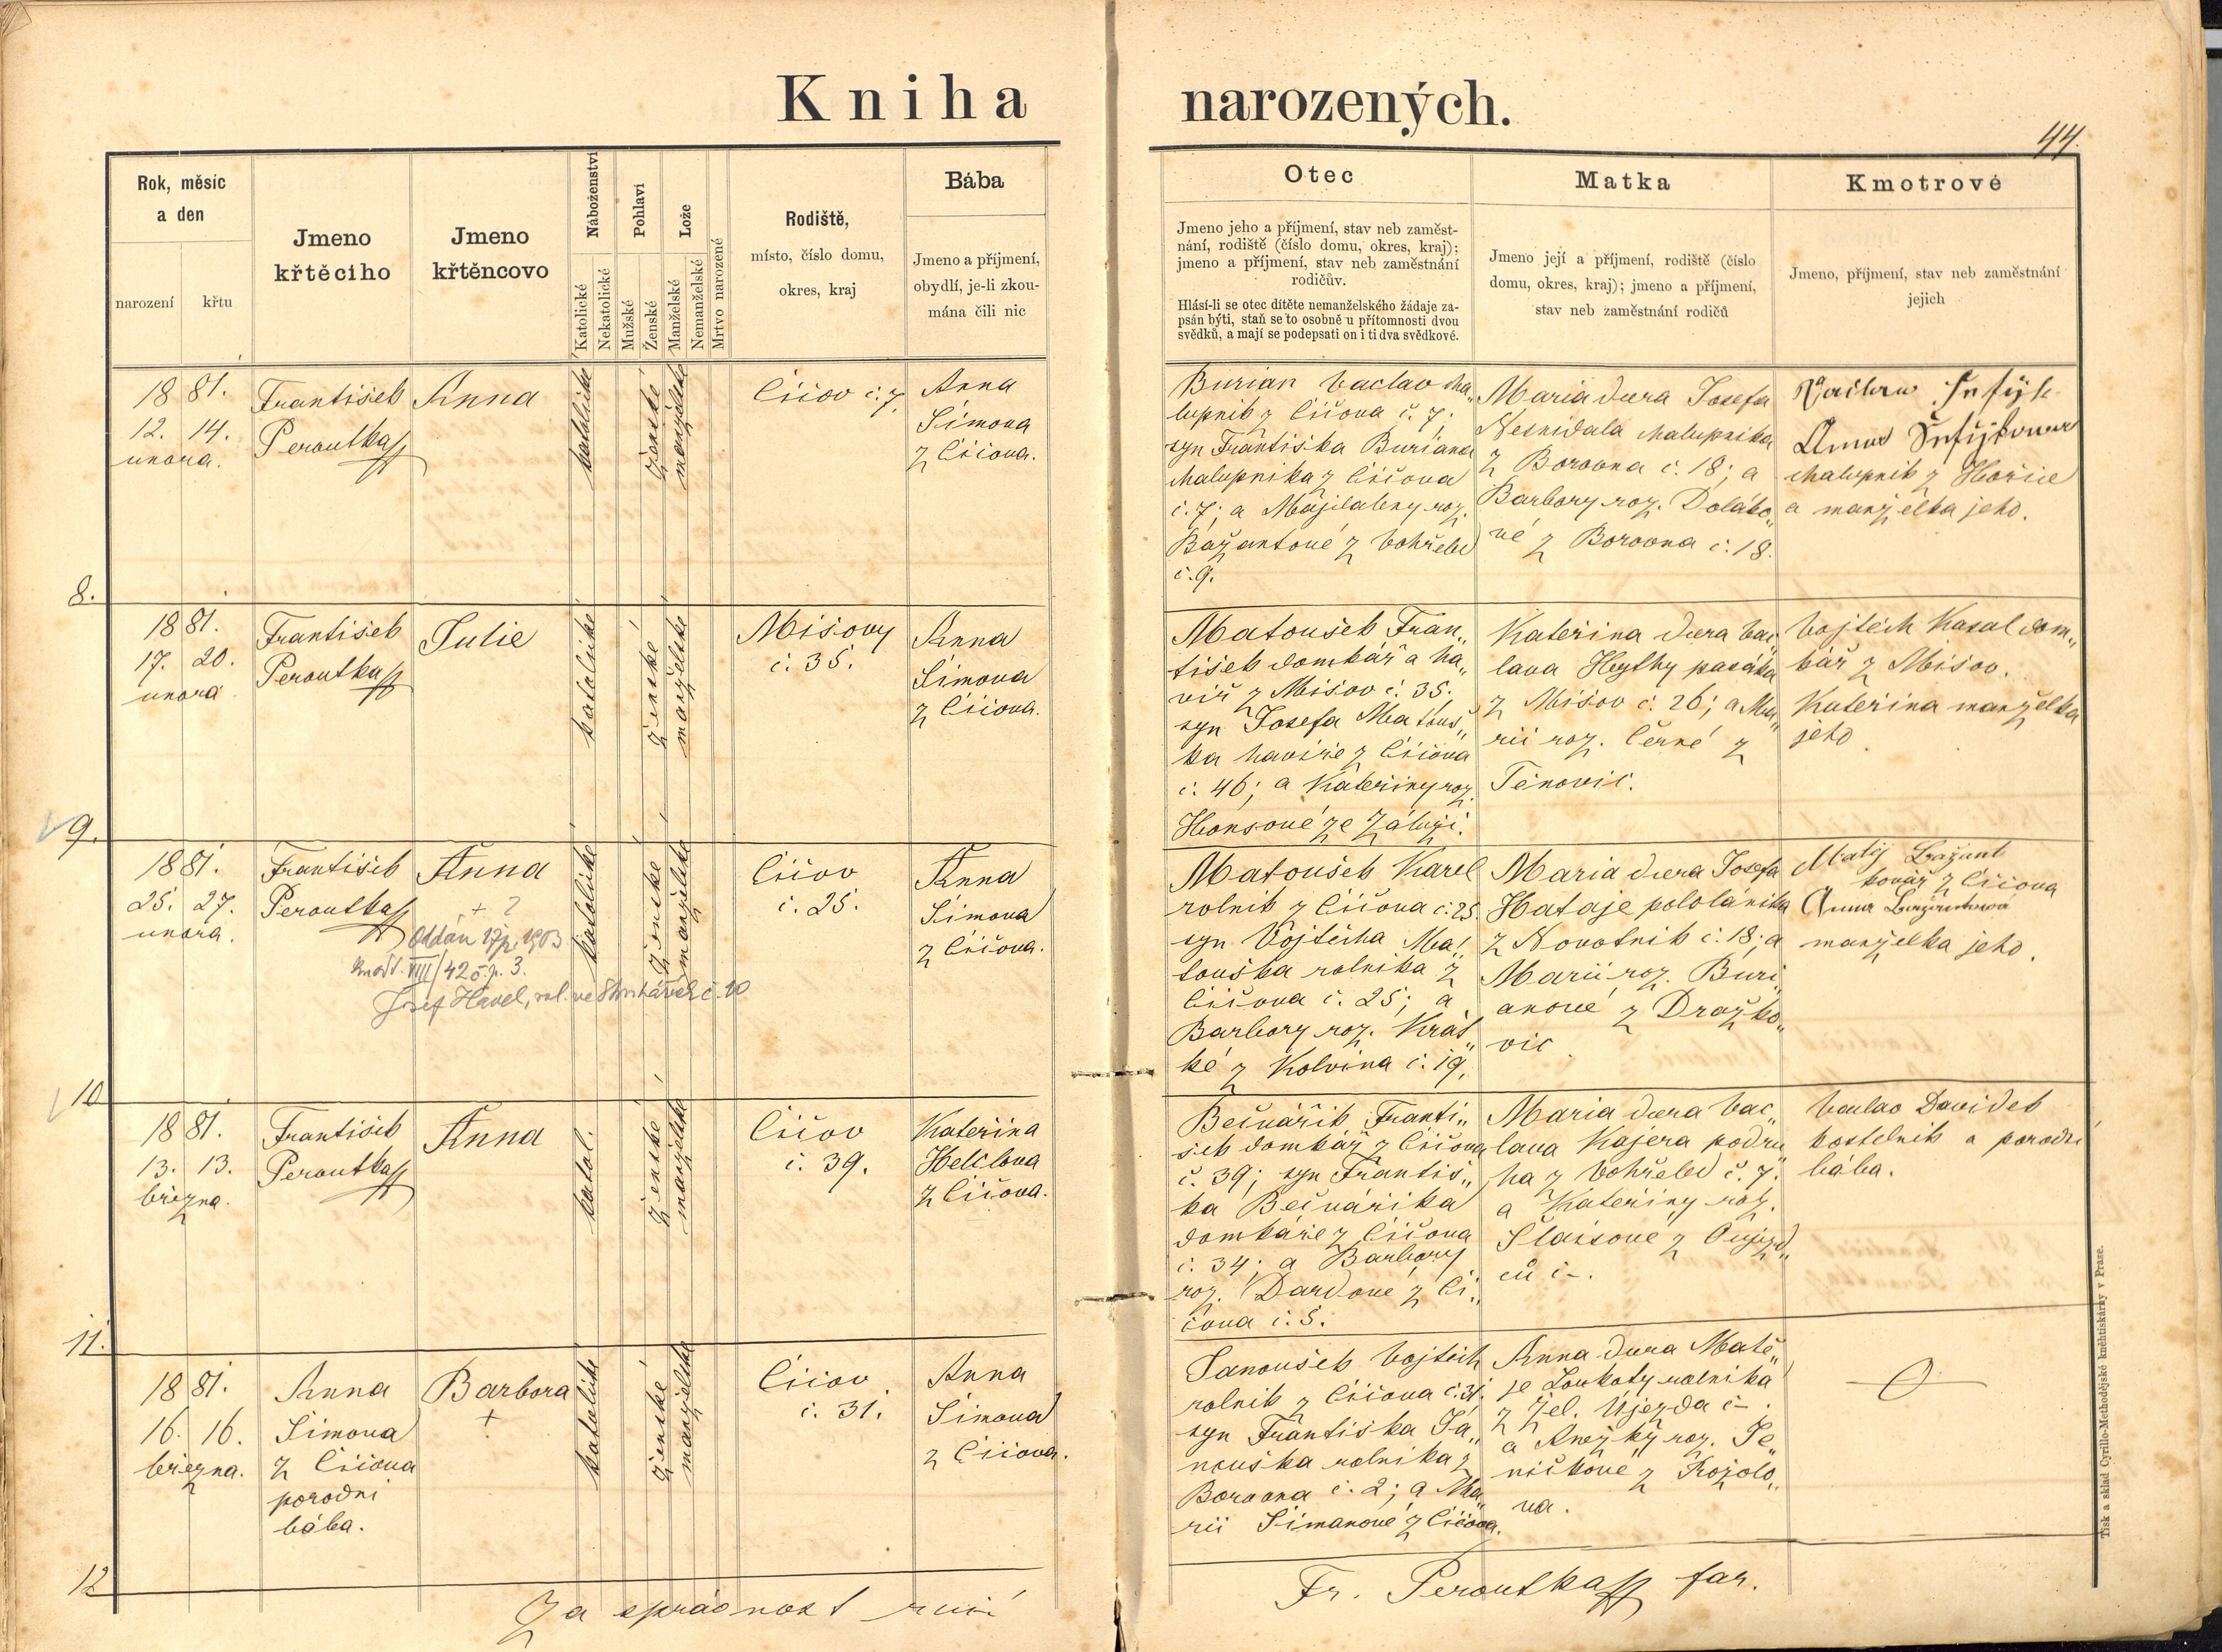 Kniha narozených.
44.
Rok, měsíc
a den
narození
křtu
Jmeno
křtěcího
Jmeno
křtěncovo
Náboženství
Katolické
Nekatolické
Pohlaví
Mužské
Ženské
Lože
Manželské
Nemanželské
Mrtvo narozené
Rodiště,
místo, číslo domu,
okres, kraj
Bába
Jmeno a příjmení,
obydlí, je-li zkou-
mána čili nic
Otec
Jmeno jeho a příjmení, stav neb zaměst-
nání, rodiště (číslo domu, okres, kraj);
jmeno a příjmení, stav neb zaměstnání
rodičův.
Hlásí-li se otec dítěte nemanželského žádaje za-
psán býti, staň se to osobně u přítomnosti dvou
svědků, a mají se podepsati on i ti dva svědkové.
Matka
Jmeno její a příjmení, rodiště (číslo
domu, okres, kraj); jmeno a příjmení,
stav neb zaměstnání rodičů
Kmotrové
Jmeno, příjmení, stav neb zaměstnání
jejich
1881.
12. 14.
února.
František
Peroutka
Anna
katolické
ženské
manželské
Číčov č. 7.
Anna
Šimova
z Číčova.
Burian Václav cha„
lupník z Číčova č. 7;
syn Františka Buriana
chalupníka z Číčova
č. 7; a Majdaleny roz.
Bažantové z Vohřeled
č. 9.
Maria dcera Josefa
Nesnídala chalupníka
z Borovna č. 18; a
Barbory roz. Doláko„
vé z Borovna č. 18.
Václav
Anna
chalupník z Hořice
a manželka jeho.
8.
1881.
17. 20.
února
František
Peroutka
Julie
katolické
ženské
manželské
Míšovy
č. 35.
Anna
Šimova
z Číčova.
Matoušek Fran„
tišek domkář a ha„
víř z Míšov č. 35.
syn Josefa Matouš„
ka havíře z Číčova
č. 46; a Kateřiny roz.
Honsové ze Záluží.
Kateřina dcera Vác„
lava Hejtky pasáka
z Míšov č. 26; a Ma„
rii roz. Černé z
Těnovic.
Vojtěch Kasal dom„
kář z Míšov.
Kateřina manželka
jeho
9.
1881.
25. 27.
února.
František
Peroutka
Anna
+ ?
Oddán 17/2. 1903
VIII/42 č. p. 3.
Josef Havel, rol. ve č. 10
katolické
ženské
manželské
Číčov
č. 25.
Anna
Šimova
z Číčova.
Matoušek Karel
rolník z Číčova č. 25
syn Vojtěcha Ma„
touška rolníka z
Číčova č. 25; a
Barbory roz. Krát„
ké z Kolvína č. 19.
Maria dcera Josefa
Hataje pololáníka
z Novotník č. 18; a
Marii roz. Buri„
anové z Dražko„
vic
Matěj Bažant
kovář z Číčova
Anna Bažantová
manželka jeho.
10
1881.
13. 13.
března.
František
Peroutka
Anna
katol.
ženské
manželské
Číčov
č. 39.
Kateřina
Helclova
z Číčova.
Bečvářík Franti„
šek domkář z Číčova
č. 39; syn Františ„
ka Bečváříka
domkáře z Číčova
č. 34; a Barbory
roz. Dardové z Čí„
čova č. 5.
Maria dcera Vác„
lava Kajera podru„
ha z Vohřeled č. 7.
a Kateřiny roz.
Šlaisové z Oujezd„
ců č –.
Václav Davídek
kostelník a porodní
bába.
11.
1881.
16. 16.
března.
Anna
Šimova
z Číčova
porodní
bába.
Barbora
+
katolické
ženské
manželské
Číčov
č. 31.
Anna
Šimova
z Číčova.
Janoušek Vojtěch
rolník z Číčova č. 31.
syn Františka Ja„
nouška rolníka z
Borovna č. 2; a Ma„
rii Šimanové z Číčova.
Anna dcera Matě„
je Loukoty rolníka
z Žel. Újezda č –.
a Anežky roz. Je„
níčkové z Rožolo„
va.
12
Za správnost ručí
Fr. Peroutka far.
Tisk a sklad Cyrillo-Methodějské knihtiskárny v Praze.